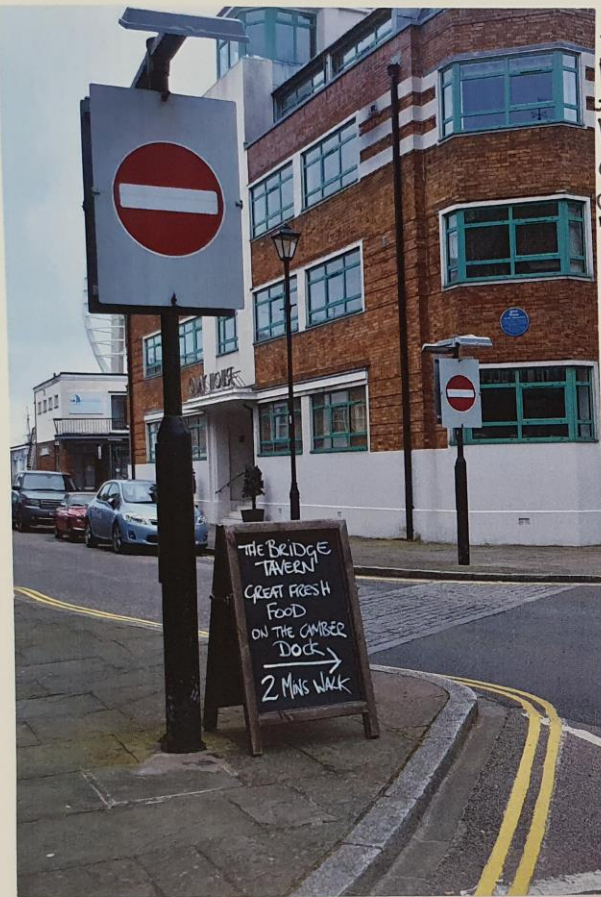 QUAY HOUSE
THE BRIDGE
TAVERN
GREAT FRESH
FOOD
ON THE CAMBER
DOCK
2 MINS WALK